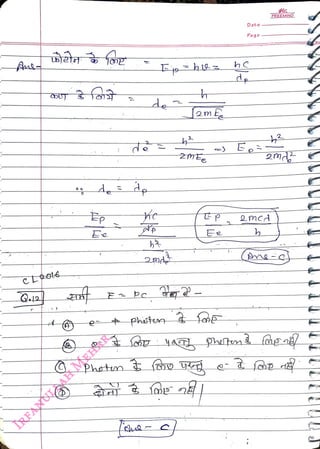 Date
Page
Ans- फोटोन के लिए = Ep = hν = hc/λp
कण के लिये = λe = h/√2mEe
λe² = h²/2mEe => Ee = h²/2mλe²
∵ λe = λp
Ep/Ee = (hc/λp)/(h²/2mλ²)   Ep/Ee = 2mcλ/h
Ans-C
Q.12 सूत्र E = PC वैध है -
(A) e⁻ + photon के लिए
(B) e⁻ के लिए परन्तु photon के लिए नहीं
(C) Photon के लिए परन्तु e⁻ के लिए नहीं
(D) दोनों के लिए नहीं
Ans - C
IRFANULLAH MEHER